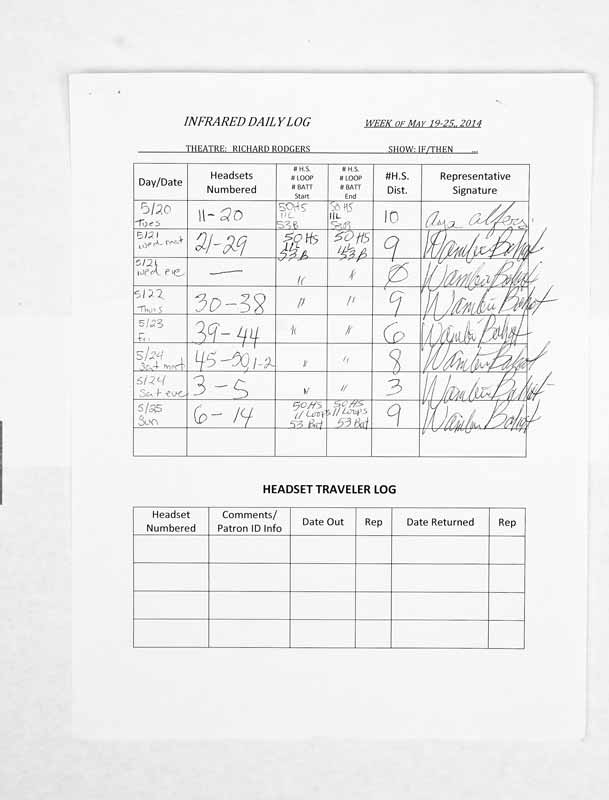 INFRARED DAILY LOG WEEK OF MAY 19-25,, 2014
THEATRE: RICHARD RODGERS SHOW: IF/THEN ...
Day/Date Headsets Numbered # H.S. # LOOP # BATT Start # H.S. # LOOP # BATT End #H.S. Dist. Representative Signature
5/20 Tues 11-20 50HS 11L 53B 50 HS 11L 53B 10
5/21 wed mat 21-29 50 HS 11L 53 B 50 HS 11L 53 B 9
5/21 wed eve — " " Ø
5/22 Thurs 30-38 " " 9
5/23 Fri 39-44 " " 6
5/24 Sat mat 45-50, 1-2 " " 8
5/24 Sat eve 3-5 " " 3
5/25 Sun 6-14 50 HS 11 Loops 53 Bat 50 HS 11 Loops 53 Bat 9
HEADSET TRAVELER LOG
Headset Numbered Comments/ Patron ID Info Date Out Rep Date Returned Rep